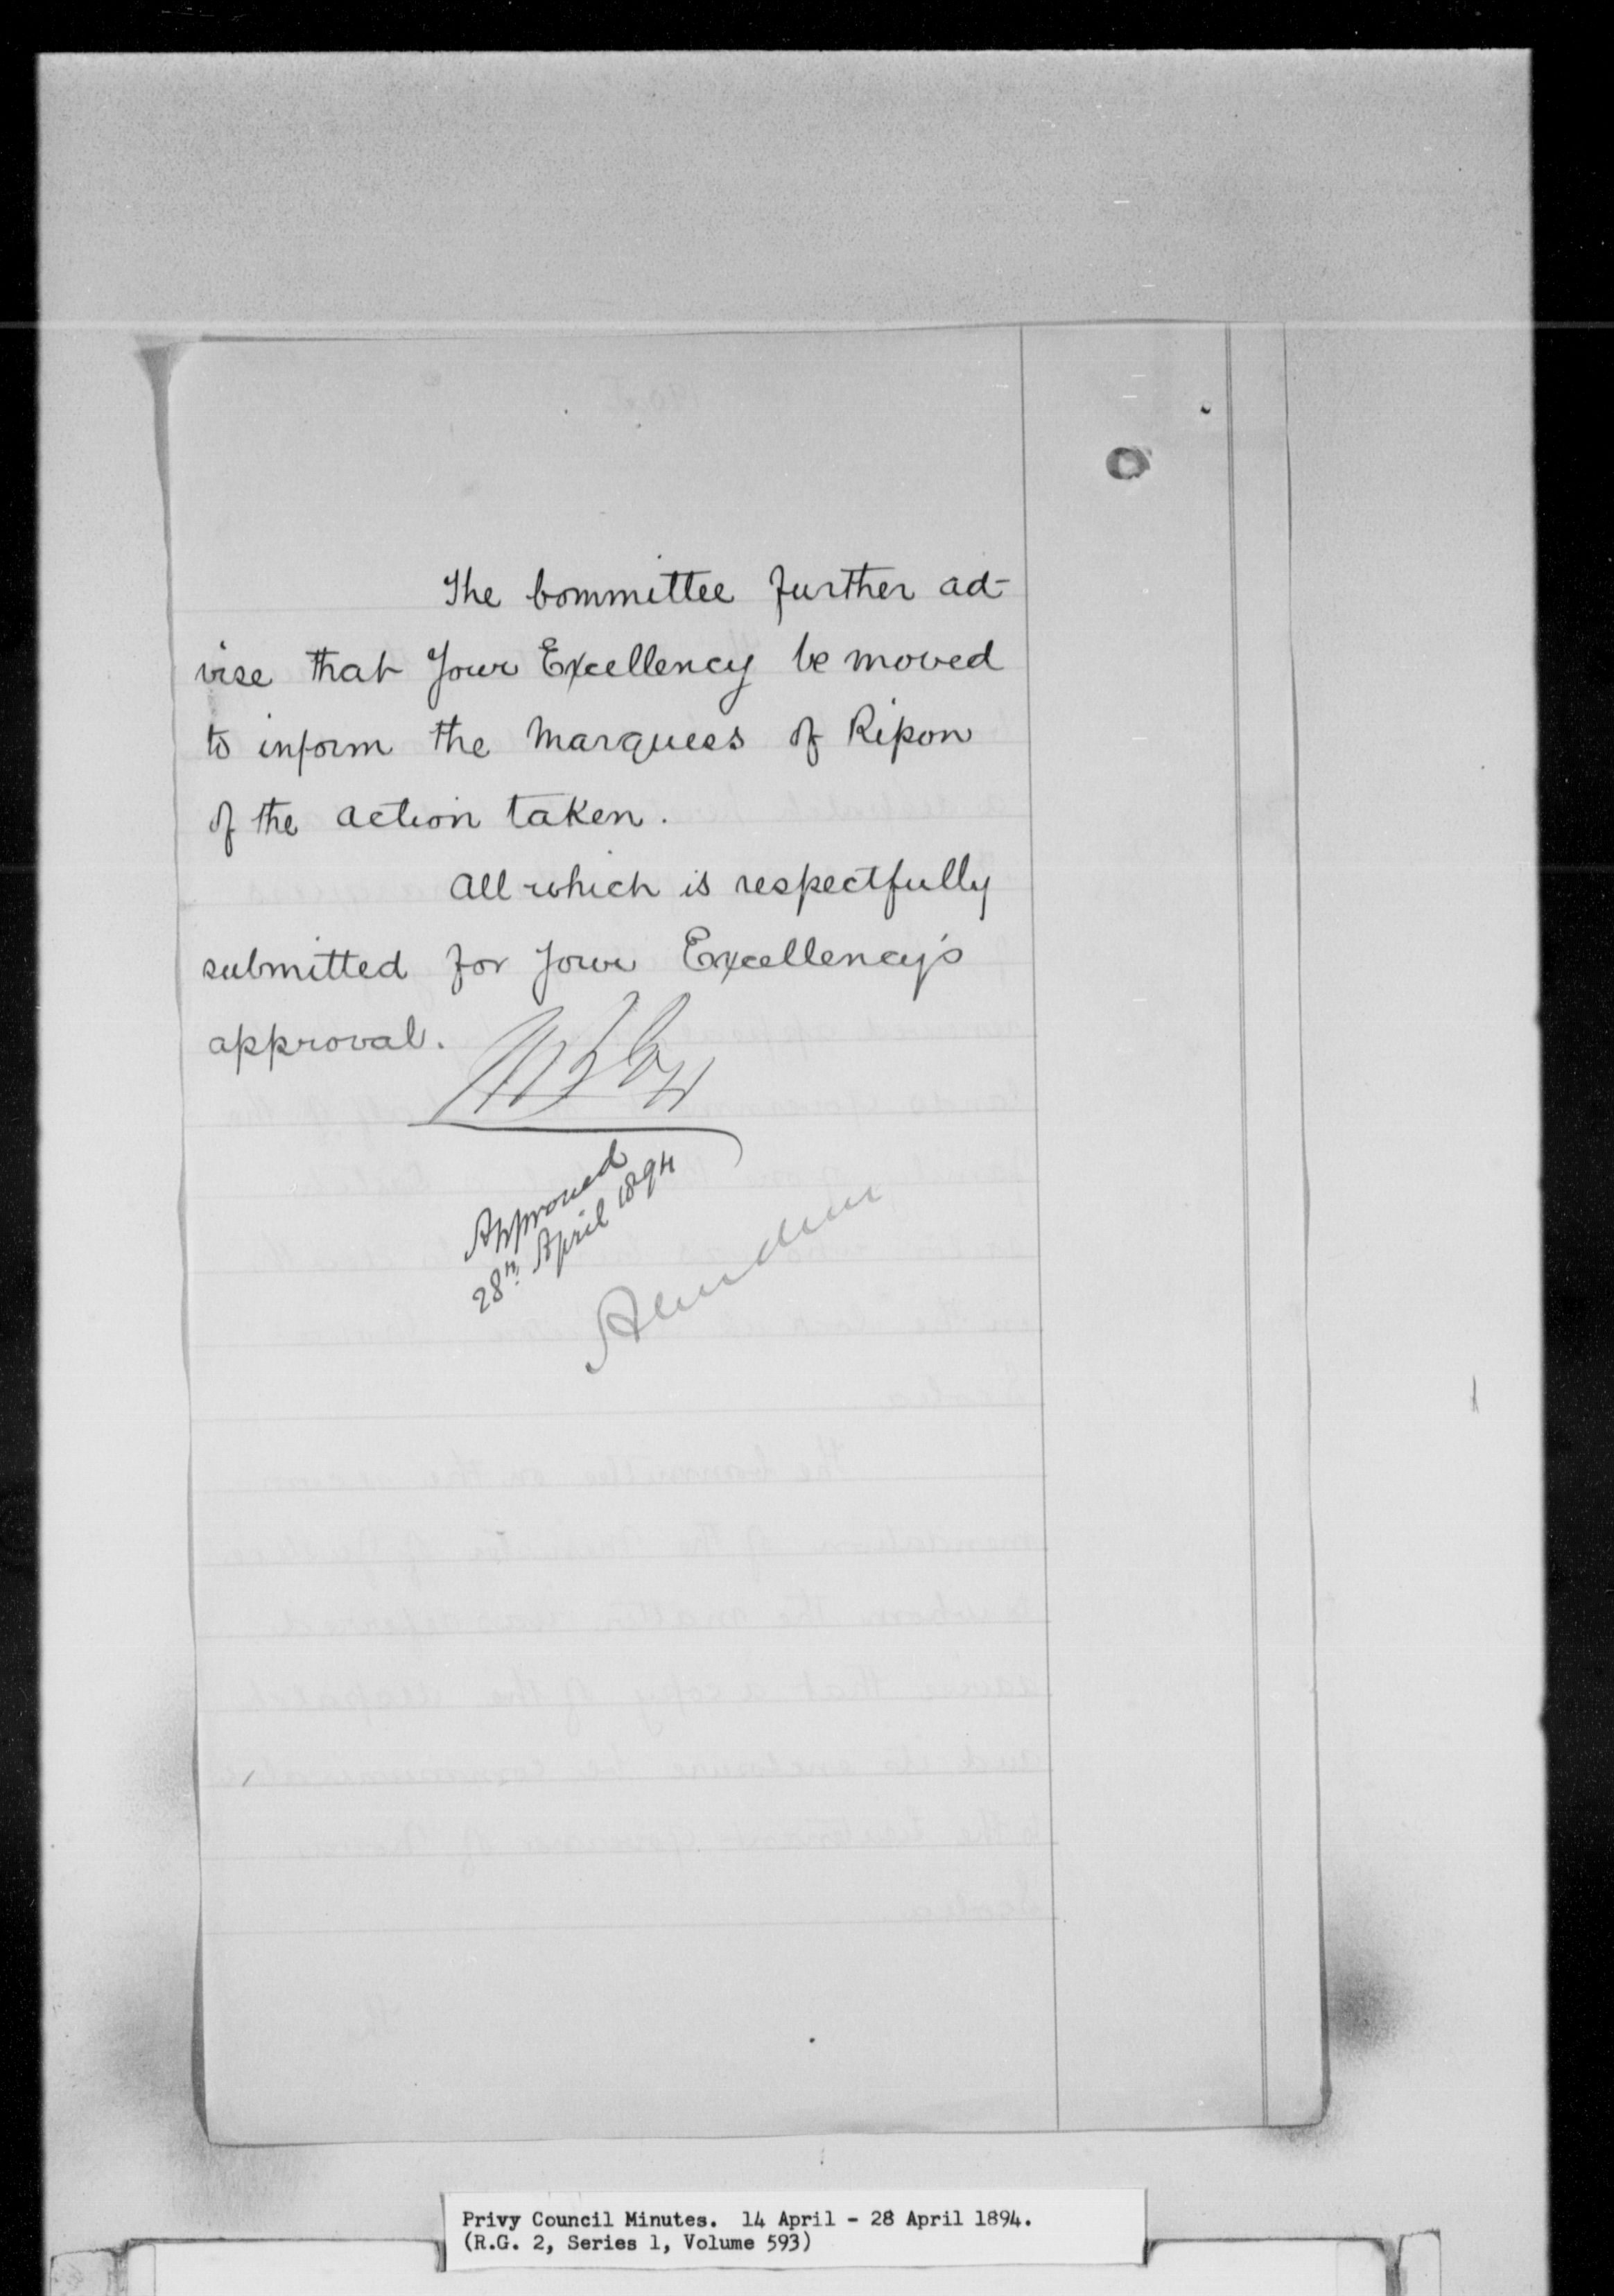 The Committee further ad-
vise that Your Excellency be moved
to inform the Marquess of Ripon
of the action taken.
All which is respectfully
submitted for Your Excellency's
approval.
Approved
28th April 1894
Aberdeen
Privy Council Minutes. 14 April - 28 April 1894.
(R.G. 2, Series 1, Volume 593)